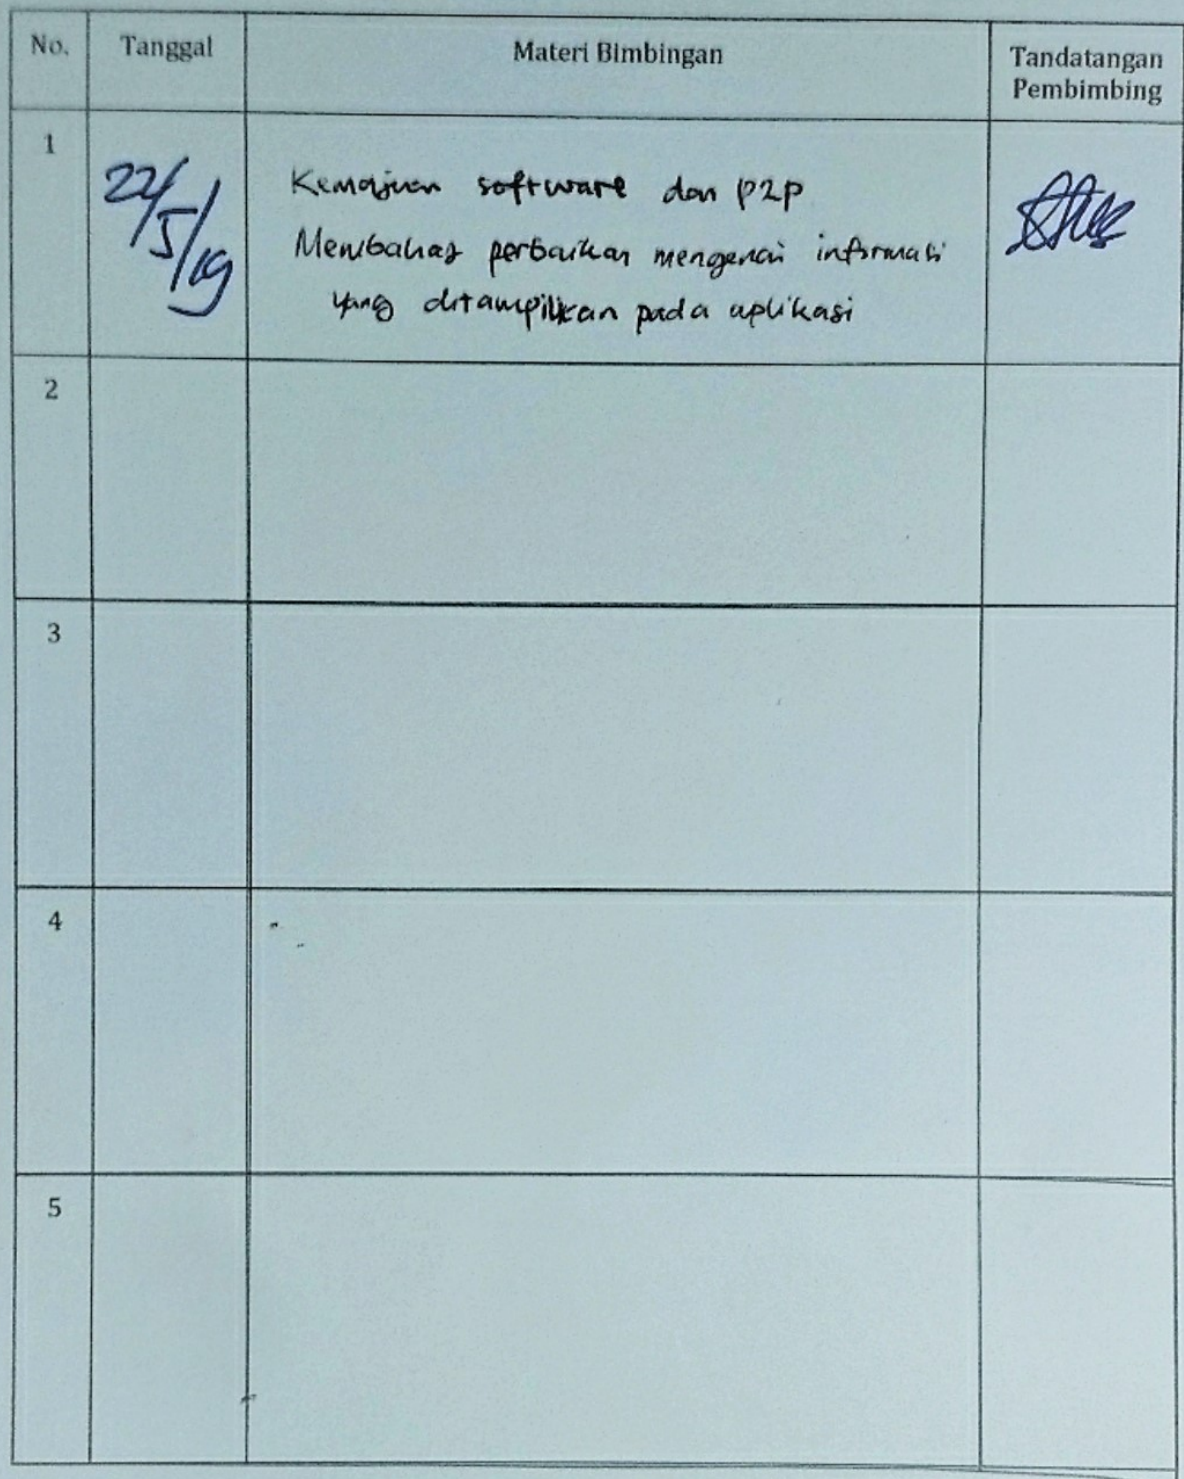 No. Tanggal Materi Bimbingan Tandatangan
Pembimbing
1
22/5/19
Kemajuan software dan P2P
Membahas perbaikan mengenai informasi
yang ditampilkan pada aplikasi
2
3
4
5